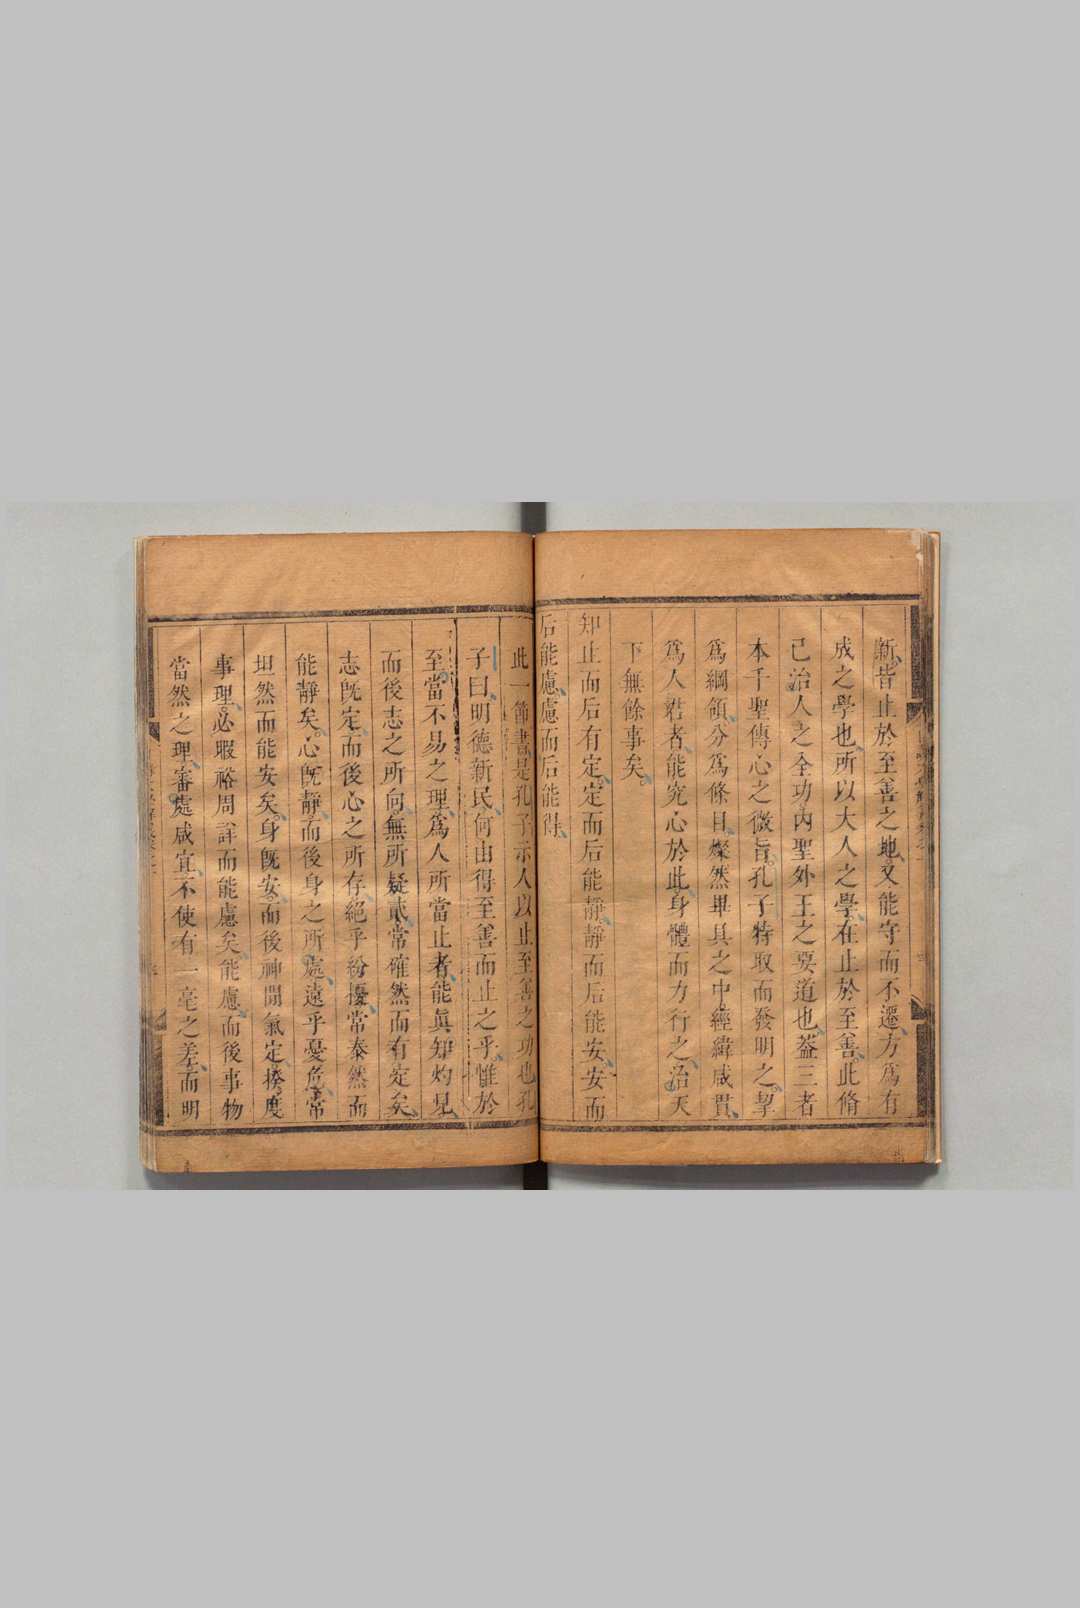 新皆止於至善之地又能守而不遷方爲有
成之學也所以大人之學在止於至善此脩
己治人之全功內聖外王之要道也葢三者
本千聖傳心之微旨孔子特取而發明之挈
爲綱領分爲條目燦然畢具之中經緯咸貫
爲人君者能究心於此身體而力行之治天
下無餘事矣
知止而后有定定而后能靜靜而后能安安而
后能慮慮而后能得
此一節書是孔子示人以止至善之功也孔
子曰明德新民何由得至善而止之乎惟於
至當不易之理爲人所當止者能眞知灼見
而後志之所向無所疑貳常確然而有定矣
志旣定而後心之所存絕乎紛擾常泰然而
能靜矣心旣靜而後身之所處遠乎憂危常
坦然而能安矣身旣安而後神閒氣定揆度
事理必暇裕周詳而能慮矣能慮而後事物
當然之理審處咸宜不使有一毫之差而明